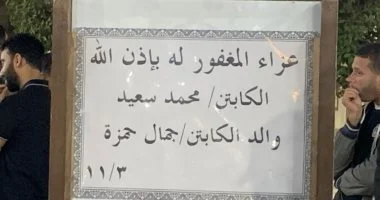 عزاء المغفور له بإذن الله
الكابتن/ محمد سعيد
والد الكابتن/جمال حمزة
١١/٣